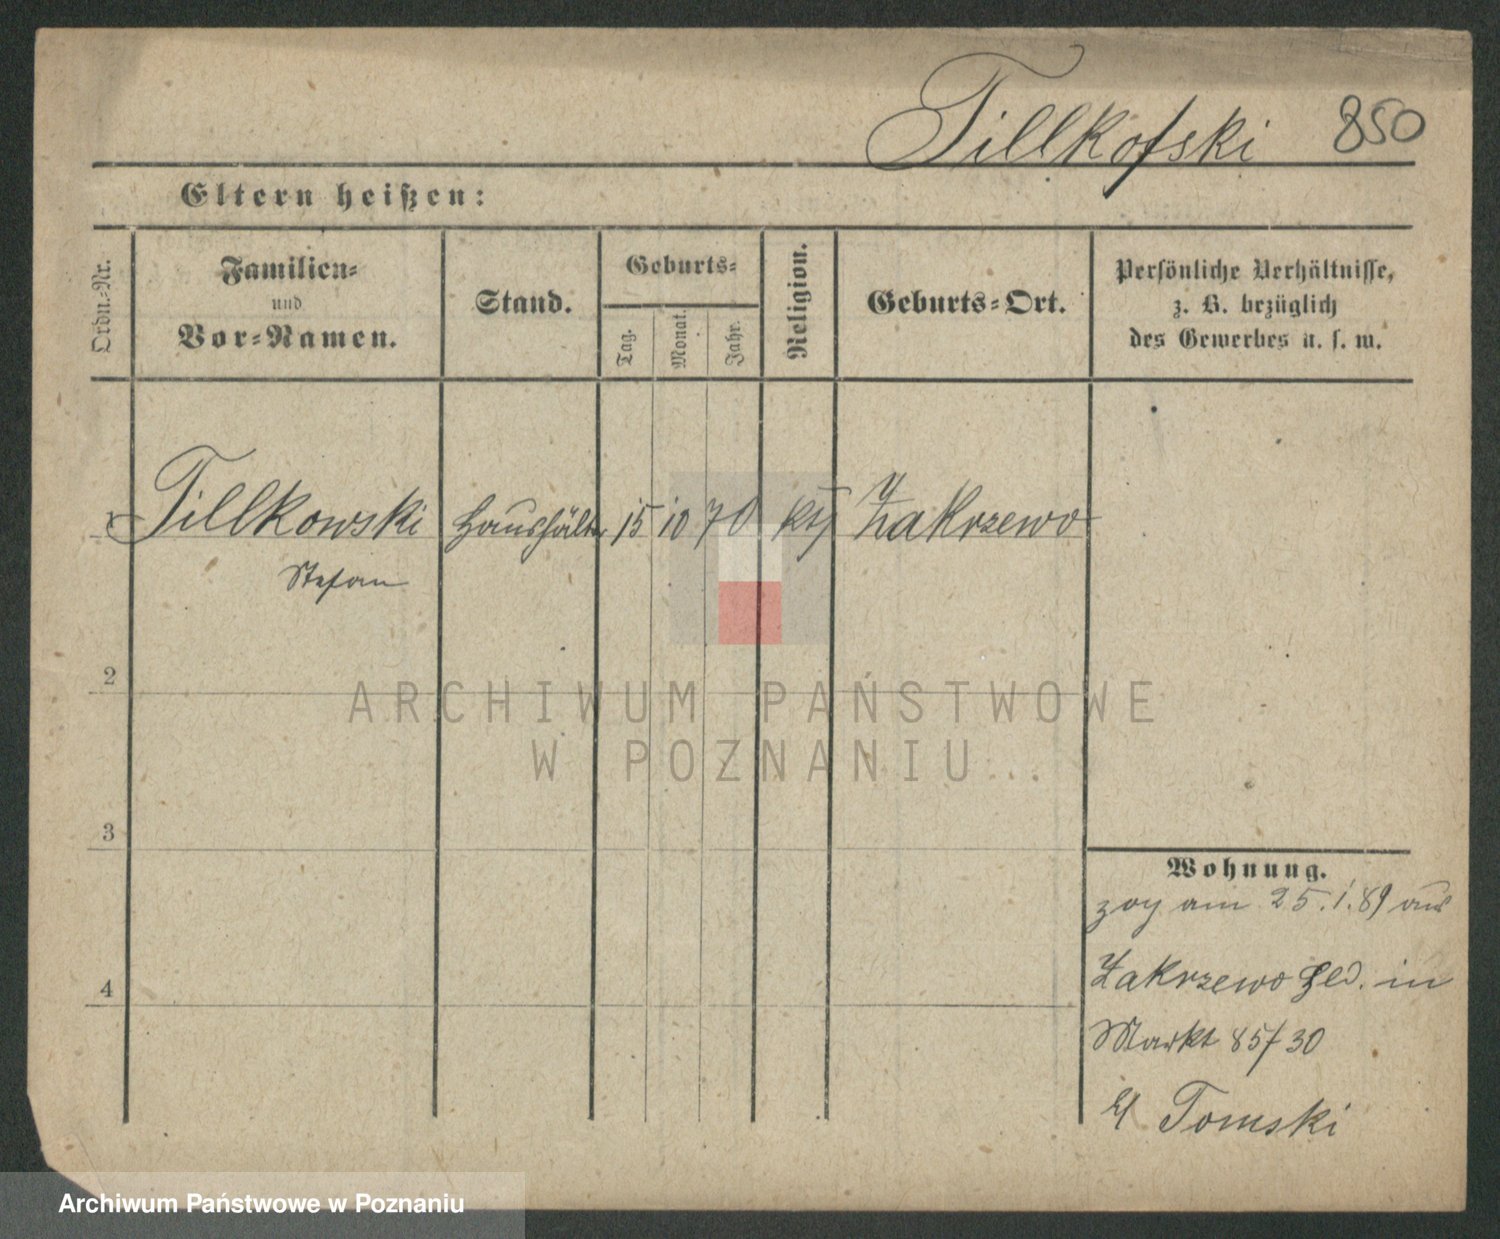 Tillkofski 850
Eltern heißen:
Ordn.-Nr.
Familien-
und
Vor-Namen.
Stand.
Geburts-
Tag.
Monat.
Jahr.
Religion.
Geburts-Ort.
Persönliche Verhältnisse,
z. B. bezüglich
des Gewerbes u. s. w.
1 Tillkowski Haushälter 15 10 70 kth Zakrzewo
Stefan
2
3
4
ARCHIWUM PAŃSTWOWE
W POZNANIU...
Wohnung.
zog am 25.1.89 aus
Zakrzewo in
Markt 85/30
Tomski
Archiwum Państwowe w Poznaniu